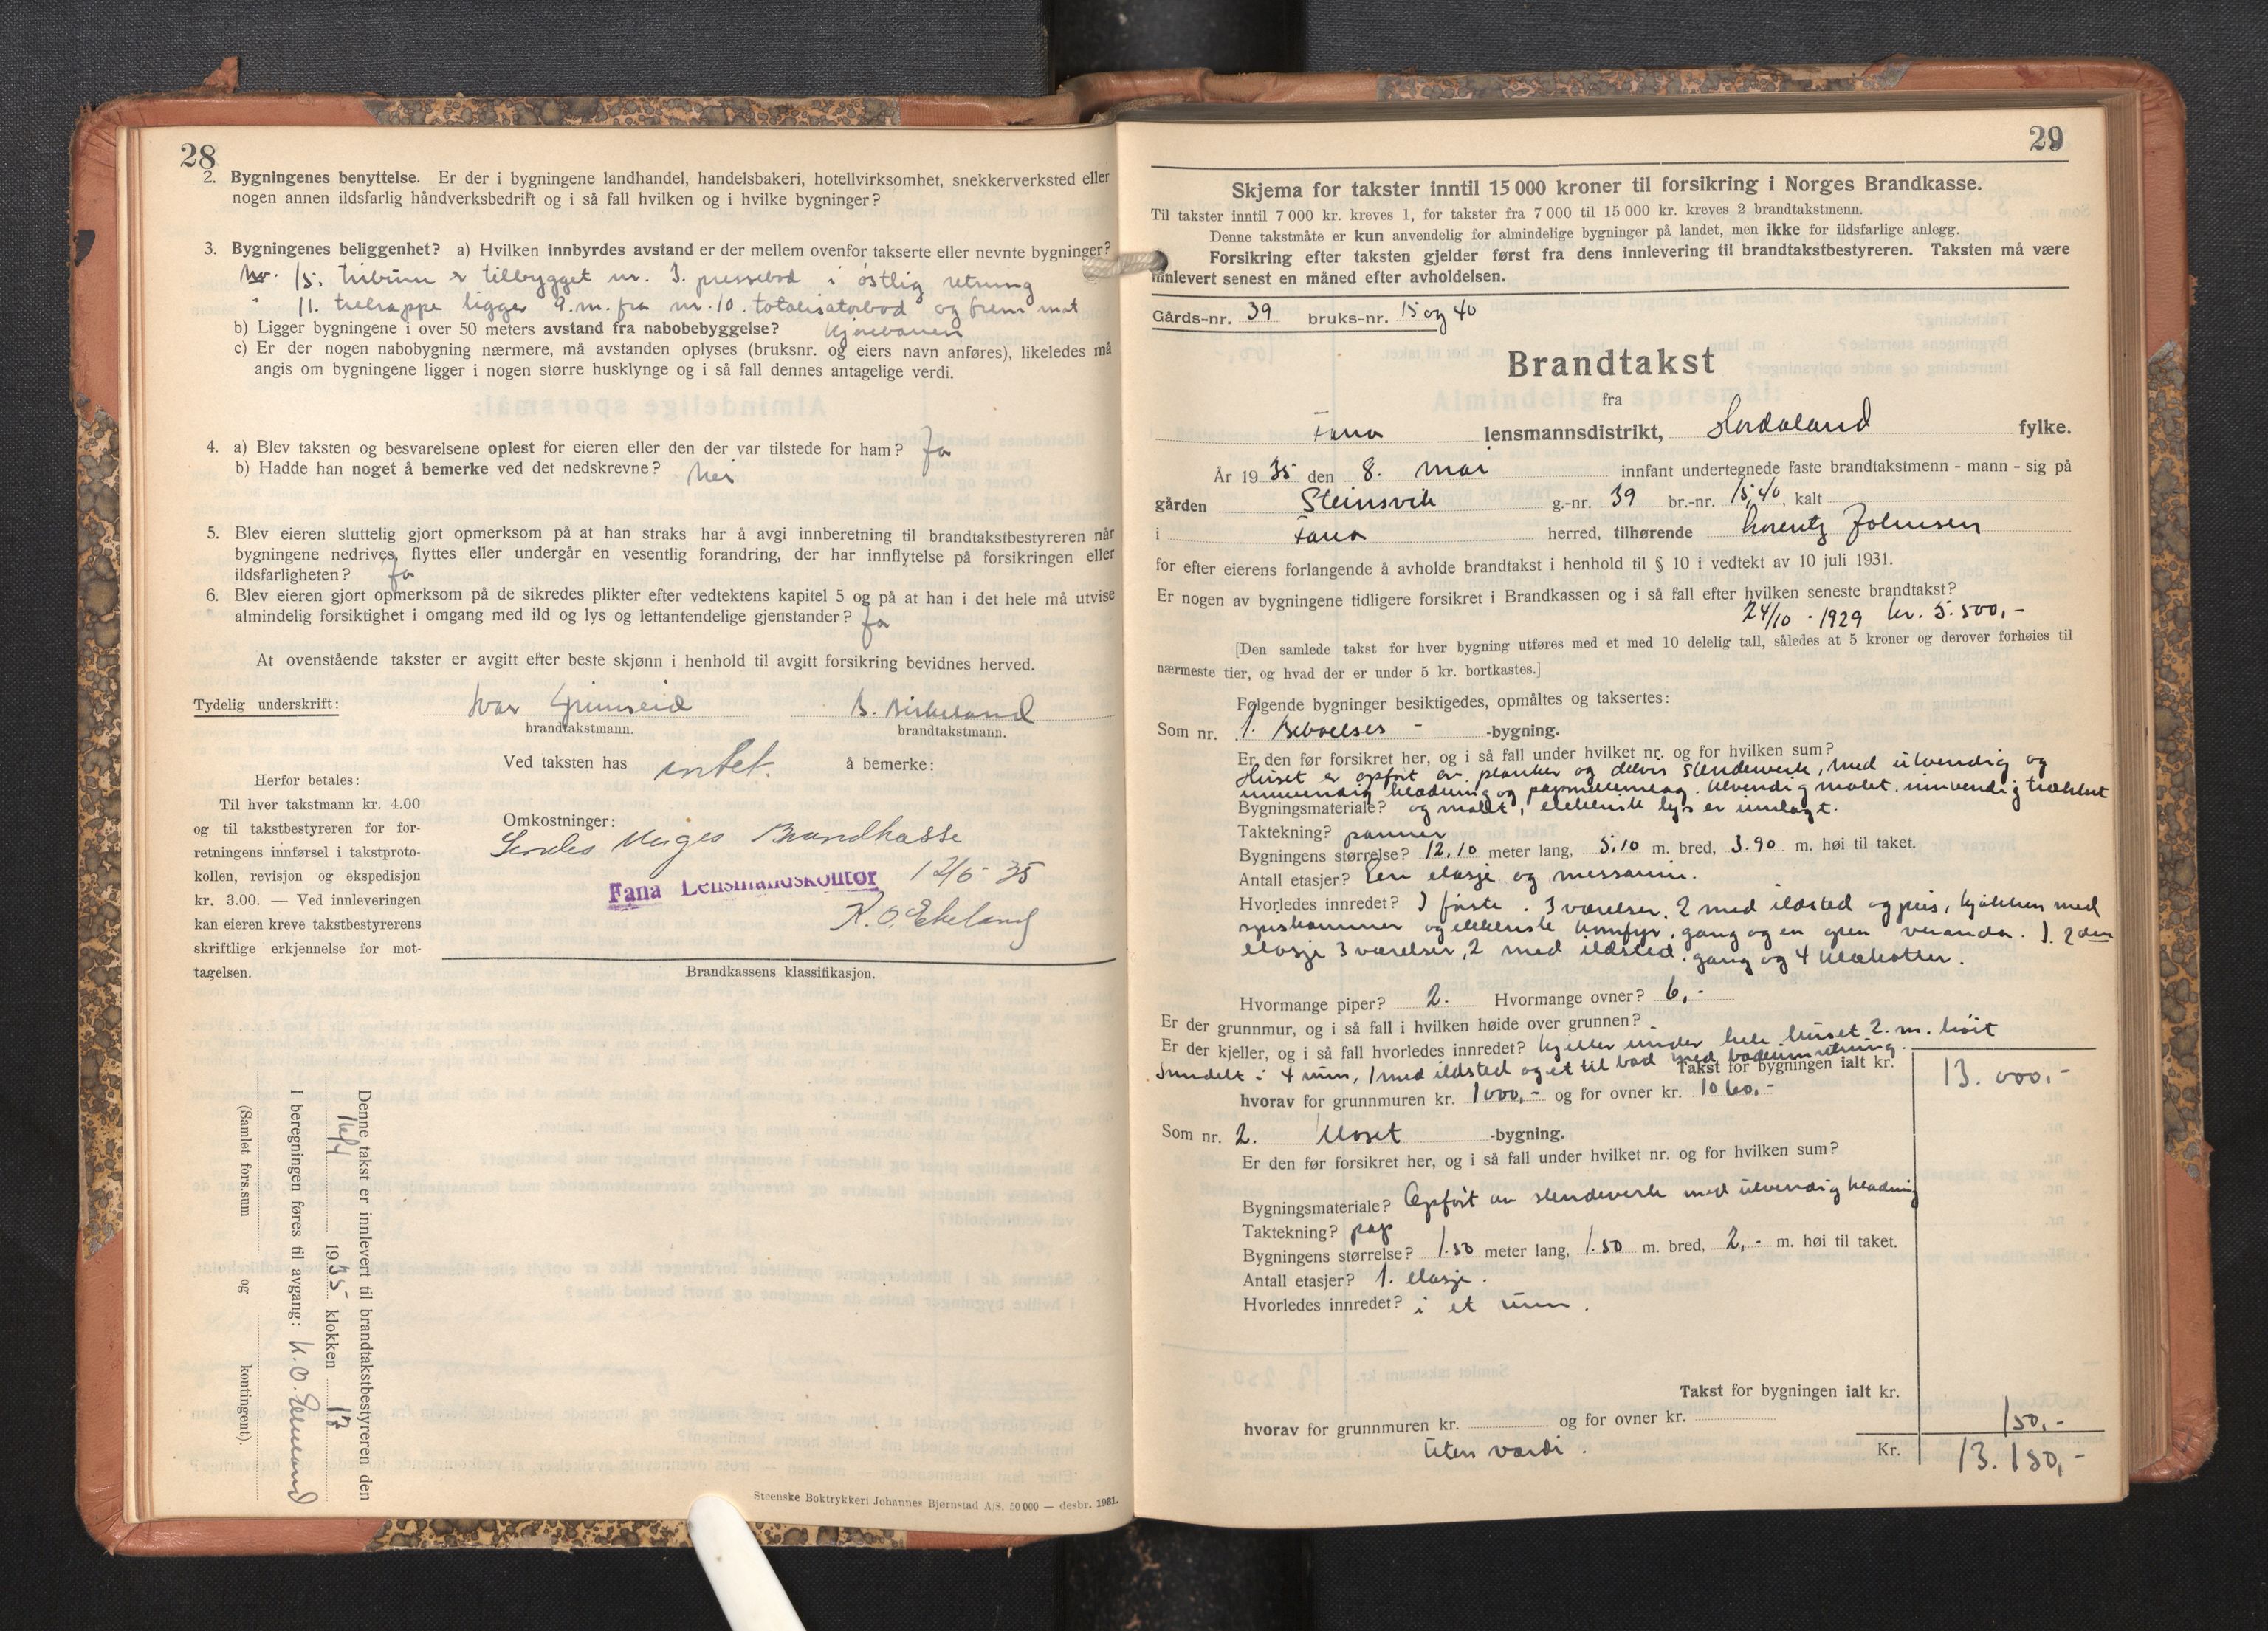 28
2. Bygningenes benyttelse. Er der i bygningene landhandel, handelsbakeri, hotellvirksomhet, snekkerverksted eller
nogen annen ildsfarlig håndverksbedrift og i så fall hvilken og i hvilke bygninger?
3. Bygningenes beliggenhet? a) Hvilken innbyrdes avstand er der mellem ovenfor takserte eller nevnte bygninger?
Nr. 15. tribune er tilbygget nr. 3. pressebod i østlig retning
" 11. tretrappe ligger 9. m. fra nr. 10. totalisatorbod og frem mot
b) Ligger bygningene i over 50 meters avstand fra nabobebyggelse? kjørebanen
c) Er der nogen nabobygning nærmere, må avstanden oplyses (bruksnr. og eiers navn anføres), likeledes må
angis om bygningene ligger i nogen større husklynge og i så fall dennes antagelige verdi.
4. a) Blev taksten og besvarelsene oplest for eieren eller den der var tilstede for ham? Ja
b) Hadde han noget å bemerke ved det nedskrevne? Nei
5. Blev eieren sluttelig gjort opmerksom på at han straks har å avgi innberetning til brandtakstbestyreren når
bygningene nedrives, flyttes eller undergår en vesentlig forandring, der har innflytelse på forsikringen eller
ildsfarligheten? Ja
6. Blev eieren gjort opmerksom på de sikredes plikter efter vedtektens kapitel 5 og på at han i det hele må utvise
almindelig forsiktighet i omgang med ild og lys og lettantendelige gjenstander? Ja
At ovenstående takster er avgitt efter beste skjønn i henhold til avgitt forsikring bevidnes herved.
Tydelig underskrift: Ivar Grimseid B. Birkeland
brandtakstmann. brandtakstmann.
Ved taksten has intet. å bemerke:
Herfor betales:
Til hver takstmann kr. 4.00
og til takstbestyreren for for-
retningens innførsel i takstproto-
kollen, revisjon og ekspedisjon
kr. 3.00. — Ved innleveringen
kan eieren kreve takstbestyrerens
skriftlige erkjennelse for mot-
tagelsen.
Omkostninger:
Sendes Norges Brandkasse
12/6 - 35
Fana Lensmandskontor
K. O. Ekeland
Brandkassens klassifikasjon.
Denne takst er innlevert til brandtakstbestyreren den
16/4 1935 klokken 13
I beregningen føres til avgang: K. O. Ekeland
(Samlet fors.sum og kontingent).
Steenske Boktrykkeri Johannes Bjørnstad A/S. 50 000 — desbr. 1931.
29
Skjema for takster inntil 15 000 kroner til forsikring i Norges Brandkasse.
Til takster inntil 7 000 kr. kreves 1, for takster fra 7 000 til 15 000 kr. kreves 2 brandtakstmenn.
Denne takstmåte er kun anvendelig for almindelige bygninger på landet, men ikke for ildsfarlige anlegg.
Forsikring efter taksten gjelder først fra dens innlevering til brandtakstbestyreren. Taksten må være
innlevert senest en måned efter avholdelsen.
Gårds-nr. 39 bruks-nr. 15 og 40
Brandtakst
fra
Fana lensmannsdistrikt, Hordaland fylke.
År 1935 den 8. mai innfant undertegnede faste brandtakstmenn - mann - sig på
gården Steinsvik g.-nr. 39 br.-nr. 15, 40, kalt
i Fana herred, tilhørende Lorentz Johnsen
for efter eierens forlangende å avholde brandtakst i henhold til § 10 i vedtekt av 10 juli 1931.
Er nogen av bygningene tidligere forsikret i Brandkassen og i så fall efter hvilken seneste brandtakst?
24/10 - 1929 kr. 5.500,-
[Den samlede takst for hver bygning utføres med et med 10 delelig tall, således at 5 kroner og derover forhøies til
nærmeste tier, og hvad der er under 5 kr. bortkastes.]
Følgende bygninger besiktigedes, opmåltes og taksertes:
Som nr. 1. Beboelses - -bygning.
Er den før forsikret her, og i så fall under hvilket nr. og for hvilken sum?
Huset er opført av planker og delvis stenderverk, med utvendig og
innvendig klædning og papmellemlag. Utvendig malet. innvendig trækket
Bygningsmateriale? og malet, elektrisk lys er innlagt.
Taktekning? panner
Bygningens størrelse? 12,10 meter lang, 5,10 m. bred, 3.90 m. høi til taket.
Antall etasjer? Een etasje og messanin.
Hvorledes innredet? I første. 3 værelser, 2 med ildsted og peis, kjøkken med
spiskammer og elektrisk komfyr, gang og en open veranda. I 2den
etasje 3 værelser, 2 med ildsted. gang og 4 klækotter.
Hvormange piper? 2. Hvormange ovner? 6,-
Er der grunnmur, og i så fall i hvilken høide over grunnen?
Er der kjeller, og i så fall hvorledes innredet? kjeller under hele huset 2. m. høit
Inndelt i 4 rum, 1 med ildsted og et til bad med badeinnretning.
Takst for bygningen ialt kr. 13.000,-
hvorav for grunnmuren kr. 1000,- og for ovner kr. 1060,-
Som nr. 2. Kloset -bygning.
Er den før forsikret her, og i så fall under hvilket nr. og for hvilken sum?
Bygningsmateriale? Opført av stenderverk med utvendig klædning
Taktekning? pap
Bygningens størrelse? 1.50 meter lang, 1.50 m. bred, 2,- m. høi til taket.
Antall etasjer? 1. etasje.
Hvorledes innredet? i et rum.
Takst for bygningen ialt kr.
hvorav for grunnmuren kr. og for ovner kr. 150,-
Uten værdi. Kr. 13.150,-